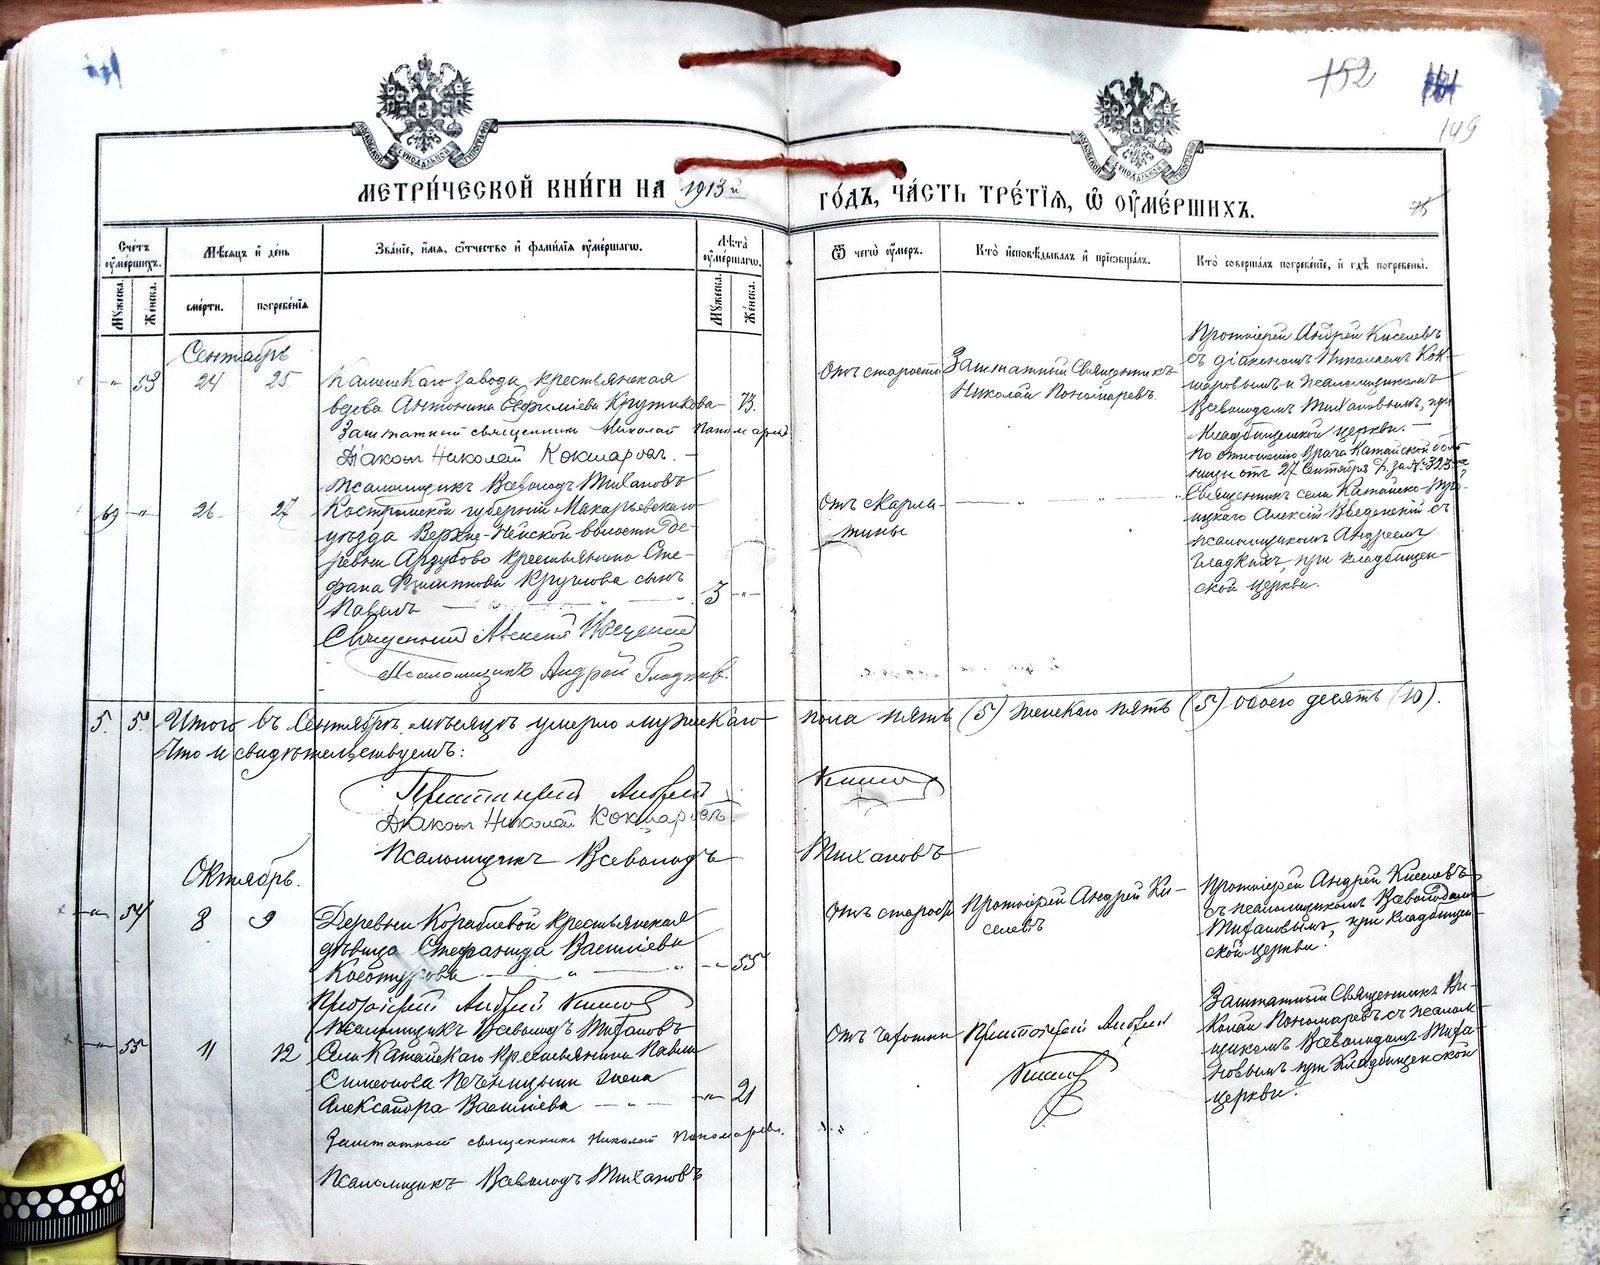 152
149
МЕТРИ́ЧЕСКОЙ КНИ́ГИ НА 1913й ГО́ДЪ, ЧА́СТЬ ТРЕ́ТІѦ, Ѿ ОУМЕ́РШИХЪ.
75
Сче́тъ оуме́ршихъ.
Мꙋжеска.
Же́нска.
Мѣ́сяцъ и҆ де́нь
сме́рти.
погребе́нїѧ
Зва́нїе, и҆́мѧ, ѻ҆́тчество и҆ фамѝлїѧ оуме́ршагѡ.
Лѣ́та оуме́ршагѡ.
Мꙋжеска.
Же́нска.
Ѿ чегѡ̀ оу́меръ.
Кто̀ и҆сповѣ́дывалъ и҆ прїѡбща́лъ.
Кто̀ соверша́лъ погребе́нїе, и҆ гдѣ̀ погребены̀.
Сентябрь
" 53 24 25
Каменскаго завода крестьянская
вдова Антонина Крутикова 73.
Заштатный священникъ Николай Пономаревъ
Діаконъ Николай Кокшаровъ.
Псаломщикъ Всеволодъ Тихановъ
Отъ старости
Заштатный Священникъ
Николай Пономаревъ
Протоіерей Андрей Киселевъ
съ діакономъ Николаемъ Кок-
шаровымъ и псаломщикомъ
Всеволодомъ Тихановымъ, при
кладбищенской церкви.
" 26 27
Костромской губерніи Макарьевскаго
уѣзда Верхне-Нейской волости де-
ревни крестьянина Сте-
фана Круглова сынъ
Павелъ 3 "
Священникъ Алексій Введенскій
Псаломщикъ Андрей Гладкихъ
Отъ скарла-
тины
По отношенію врача Катайской боль
ницы отъ 27 Сентября за №
Священникъ села Катайско-Тро-
ицкаго Алексій Введенскій съ
псаломщикомъ Андреемъ
Гладкихъ, при кладбищен-
ской церкви.
5. 5. Итого въ Сентябрѣ мѣсяцѣ умерло мужскаго пола пять (5) женскаго пять (5) обоего десять (10).
Что и свидѣтельствуемъ:
Протоіерей Андрей Киселевъ
Діаконъ Николай Кокшаровъ
Псаломщикъ Всеволодъ Тихановъ
Октябрь.
" 54 8 9
Деревни Кораблевой крестьянская
дѣвица Стефанида Василіева
" 55
Протоіерей Андрей Киселевъ
Псаломщикъ Всеволодъ Тихановъ
Отъ старости
Протоіерей Андрей Ки-
селевъ
Протоіерей Андрей Киселевъ
съ псаломщикомъ Всеволодомъ
Тихановымъ, при кладбищен
ской церкви.
" 55 11 12
Села Катайскаго крестьянина Павла
Симеонова Печеницына жена
Александра Василіева " 21
Заштатный священникъ Николай Пономаревъ.
Псаломщикъ Всеволодъ Тихановъ
Отъ чахотки
Протоіерей Андрей
Киселевъ
Заштатный Священникъ Ни-
колай Пономаревъ съ псалом
щикомъ Всеволодомъ Тиха-
новымъ при кладбищенской
церкви.